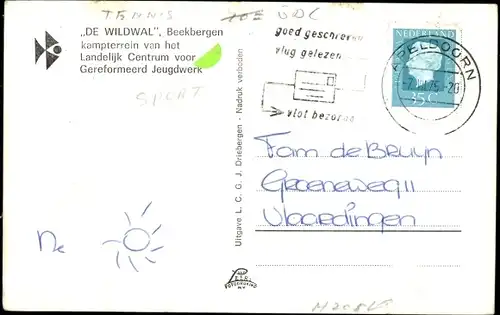 TENNIS
„DE WILDWAL”, Beekbergen
kampterrein van het
Landelijk Centrum voor
Gereformeerd Jeugdwerk
SPORT
goed geschreven
vlug gelezen
vlot bezorgd
APELDOORN
75
-20
NEDERLAND
35c
Uitgave L. C. G. J. Driebergen - Nadruk verboden
Fam de Bruyn
Groeneweg 11
Vlaardingen